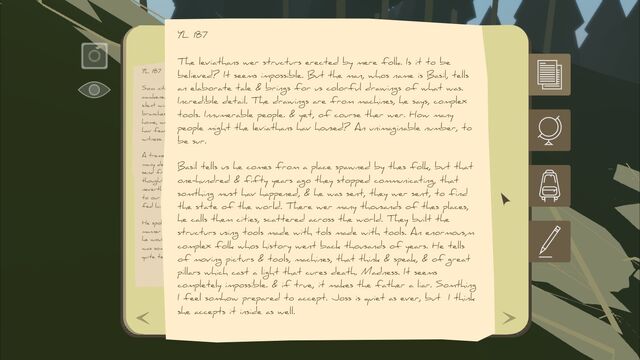 YL 187
The leviathans wer structurs erected by mere folk. Is it to be
believed? It seems impossible. But the man, whos name is Basil, tells
an elaborate tale & brings for us colorful drawings of what was.
Incredible detail. The drawings are from machines, he says, complex
tools. Innumerable people. & yet, of course ther wer. How many
people might the leviathans hav housed? An unimaginable number, to
be sur.
Basil tells us he comes from a place spawned by thes folk, but that
one-hundred & fifty years ago they stopped communicating, that
somthing must hav happened, & he was sent, they wer sent, to find
the state of the world. There wer many thousands of thes places,
he calls them cities, scattered across the world. They built the
structurs using tools made with tols made with tools. An enormous,m
complex folk whos history went back thousands of years. He tells
of moving picturs & tools, machines, that think & speak, & of great
pillars which cast a light that cures death. Madness. It seems
completely impossible. & if true, it makes the father a liar. Somthing
I feel somhow prepared to accept. Joss is quiet as ever, but I think
she accepts it inside as well.
YL 187